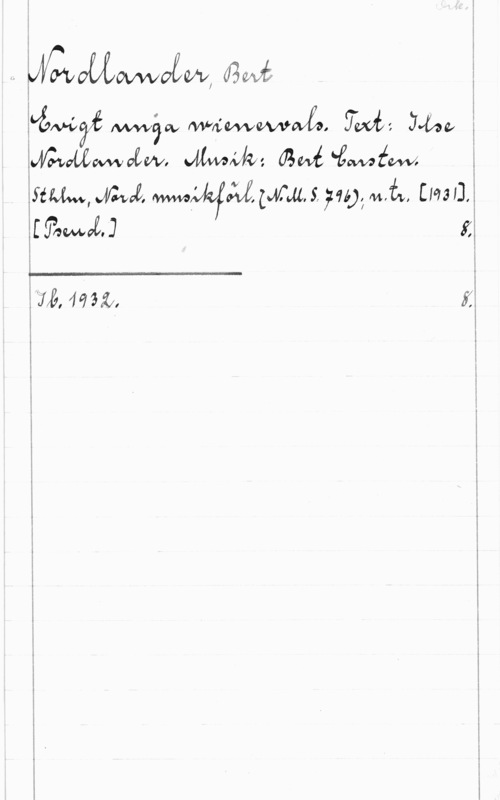 Ork.
Nordlander, Bert
Evigt unga wienervals. Text: Ilse
Nordlander. Musik: Bert Carsten.
Sthlm, Nord. musikförl. (N.M.S. 796); n.tr. [1931].
[Pseud.] 8.
Ib. 1932. 8.